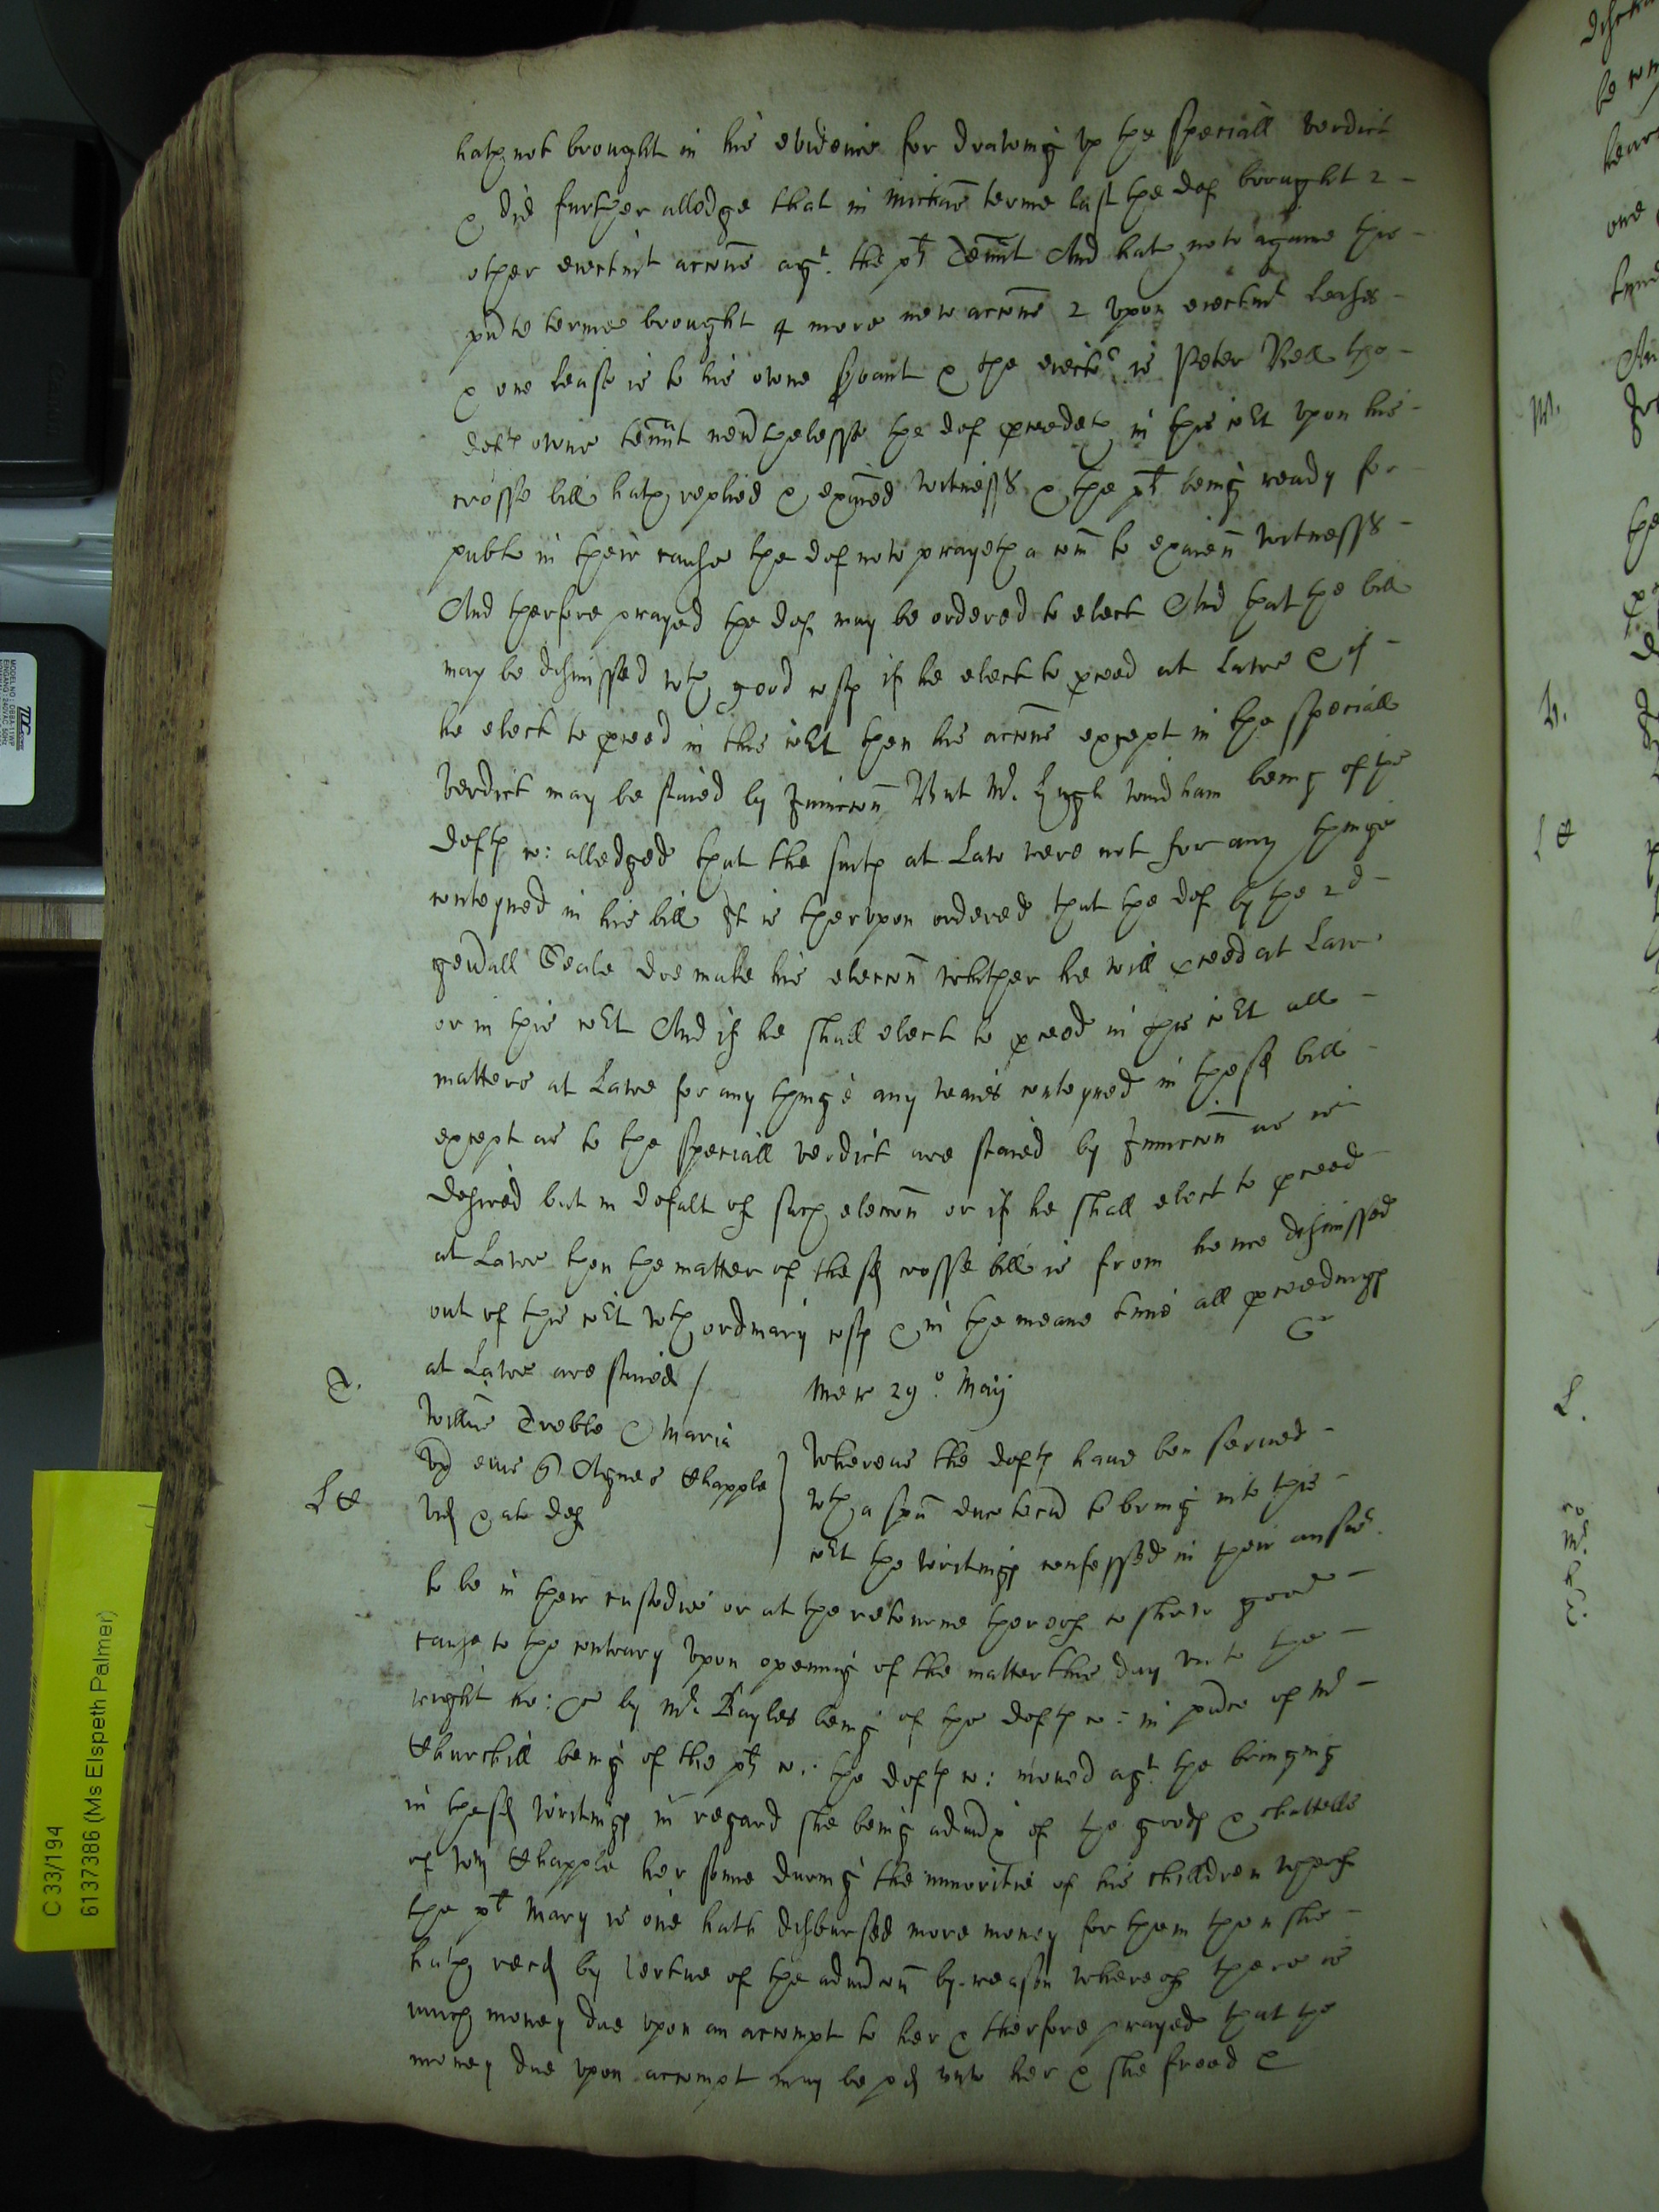 hath not brought in his evidence for draweing vp the speciall verdict
& did further alledge that in Michas terme last the def brought 2
other eiectmt accons agt. the plt Tennt And hath now againe this
pnte terme brought 4 more new accons 2 vpon eiectmt leases
& one lease is to his owne servant & the eiector is Peter Bell the
defts owne tennt neverthelesse the def proceedeth in this cort vpon his
crosse bill hath replied & exaied witnesses & the plt being ready for
publc in their cause the def now prayeth a com to exaien witnesses
And therfore prayed the def may be ordered to elect And that the bill
may be dismissed wth good costs if he elect to proceed at Lawe & if
he elect to proceed in this cort then his accons except in the speciall
verdict may be staied by Iniuccon But Mr. Hugh windham being of the
defts co: alledged that the suits at Law were not for any thinge
conteyned in his bill It is thervpon ordered that the def by the 2d
generall Seale doe make his eleccon whither he will proceed at Law
or in this cort And if he shall elect to proceed in this cort all
matters at Lawe for any thinge any waies conteyned in the sd bill
except as to the speciall verdict are staied by Iniuccon as is
desired but in default of such eleccon or if he shall elect to proceed
at Lawe then the matter of the sd crosse bill is from hence dismissed
out of this cort wth ordinary costs & in the meane time all proceedings
at Lawe are staied /
Mercr 29o. Maij
T.
Willus Treble & Maria
vx eius Agnes Chapple
vid & al def
Whereas the defts haue ben serued
wth a spa duces tecu to bring into this
cort the writings confessed in their answer.
to be in their custodie or at the retourne thereof to shew good
cause to the contrary Vpon opening of the matter this day vnto the
right ho: by Mr. Bayles being of the defts co: in pnce of Mr
Churchill being of the plts co: the defts co: moued agt. the bringing
in the sd writings in regard she being admx of the goods & chattells
of Wm Chapple her sonne during the minoritie of his chilldren whereof
the plt Mary is one hath disbursed more money for them then she
hath recd by vertue of the admcon by reason whereof there is
much money due vpon an accompt to her & therfore prayed that the
money due vpon accompt may be pd vnto her & she freed &
C 33/194
6137386 (Ms Elspeth Palmer)